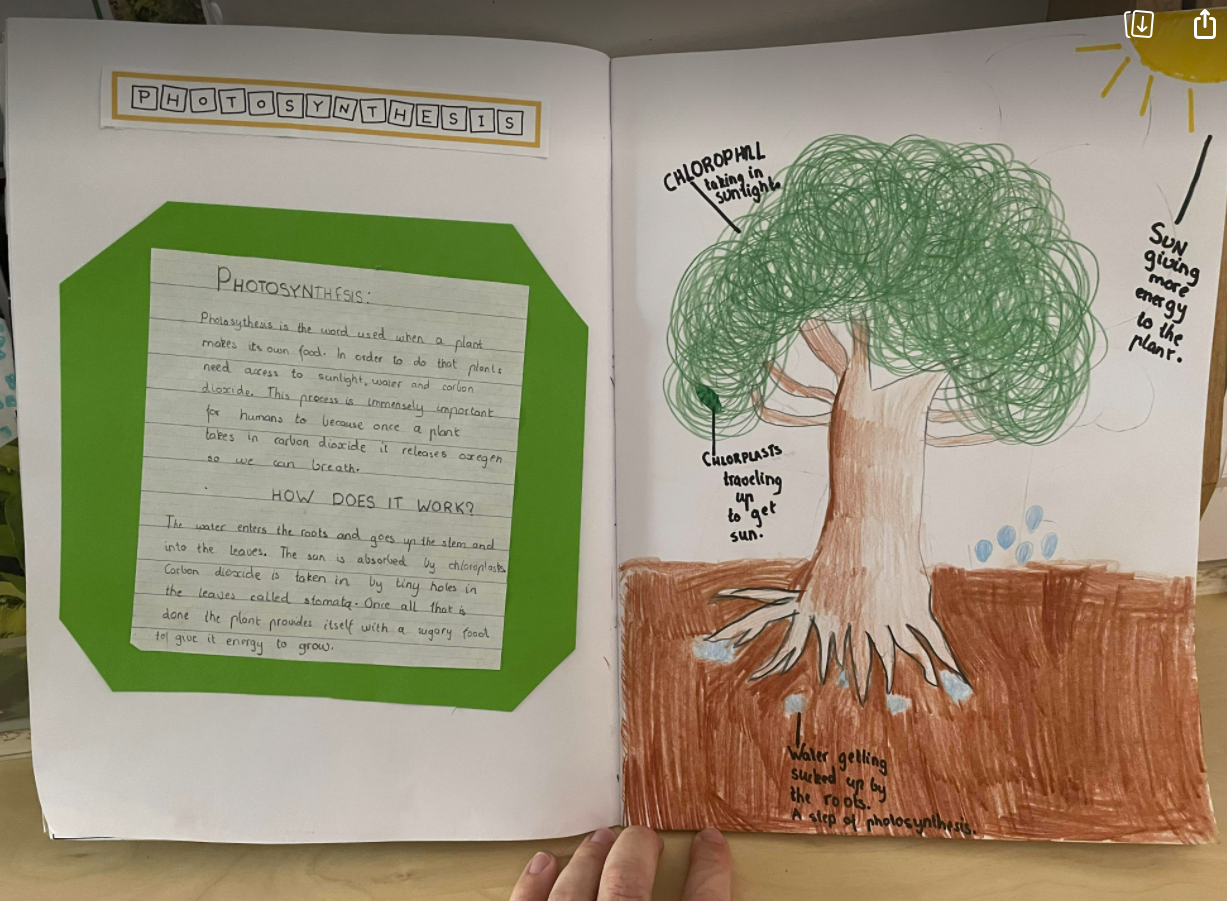 PHOTOSYNTHESIS
PHOTOSYNTHESIS:
Photosythesis is the word used when a plant
makes its own food. In order to do that plants
need access to sunlight, water and carbon
dioxide. This process is immensely important
for humans to because once a plant
takes in carbon dioxide it releases oxegen
so we can breath.
HOW DOES IT WORK?
The water enters the roots and goes up the stem and
into the leaves. The sun is absorbed by chloroplasts
Carbon dioxide is taken in by tiny holes in
the leaves called stomata. Once all that is
done the plant provides itself with a sugary food
to give it energy to grow.
CHLOROPHILL
taking in
sunlight.
SUN
giving
more
energy
to the
plant.
CHLORPLASTS
traveling
up
to get
sun.
Water getting
sucked up by
the roots.
A step of photosynthesis.